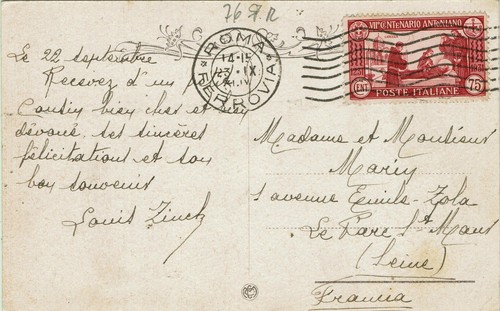 76 A R
Le 22 septembre
Recevez d'un
Cousin bien cher et
dévoué, ses sincères
félicitations et son
bon souvenir
Louis Zinck
ROMA
FERROVIA
14-15
23 IX
VII° CENTENARIO ANTONIANO
CENT. 75
POSTE ITALIANE
Madame et Monsieur
Mariy
1 avenue Emile-Zola
Le Parc St Maur
(Seine)
Francia